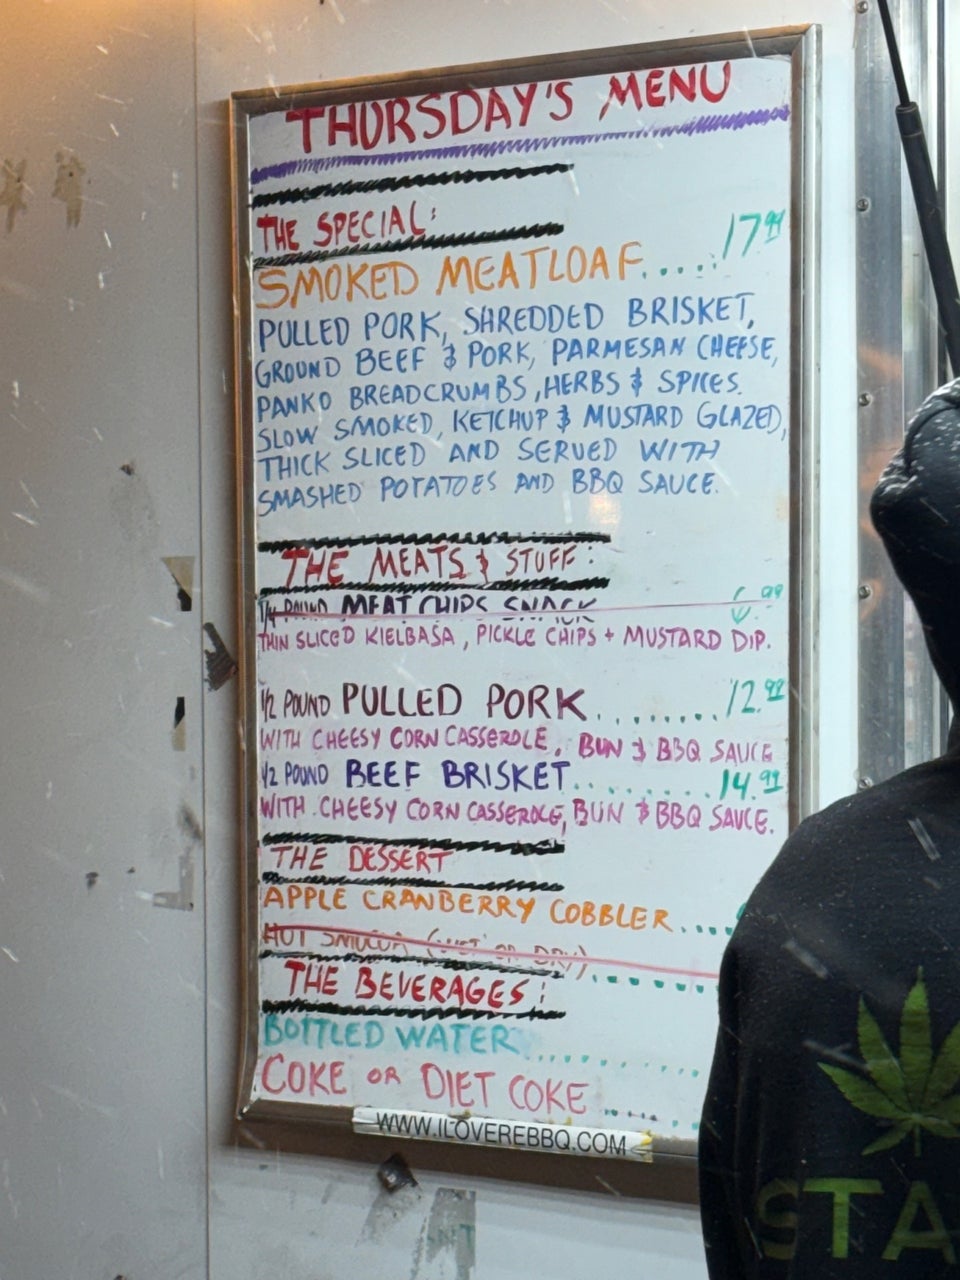 THURSDAY'S MENU
THE SPECIAL:
SMOKED MEATLOAF.....17.99
PULLED PORK, SHREDDED BRISKET,
GROUND BEEF & PORK, PARMESAN CHEESE,
PANKO BREADCRUMBS, HERBS & SPICES.
SLOW SMOKED, KETCHUP & MUSTARD GLAZED,
THICK SLICED AND SERVED WITH
SMASHED POTATOES AND BBQ SAUCE.
THE MEATS & STUFF:
1/4 POUND MEAT CHIPS SNACK 6.99
THIN SLICED KIELBASA, PICKLE CHIPS + MUSTARD DIP.
1/2 POUND PULLED PORK.......12.99
WITH CHEESY CORN CASSEROLE, BUN & BBQ SAUCE
1/2 POUND BEEF BRISKET.........14.99
WITH CHEESY CORN CASSEROLE, BUN & BBQ SAUCE.
THE DESSERT
APPLE CRANBERRY COBBLER....
HOT (WET OR DRY)
THE BEVERAGES:
BOTTLED WATER........
COKE OR DIET COKE....
WWW.ILOVEREBBQ.COM
STA